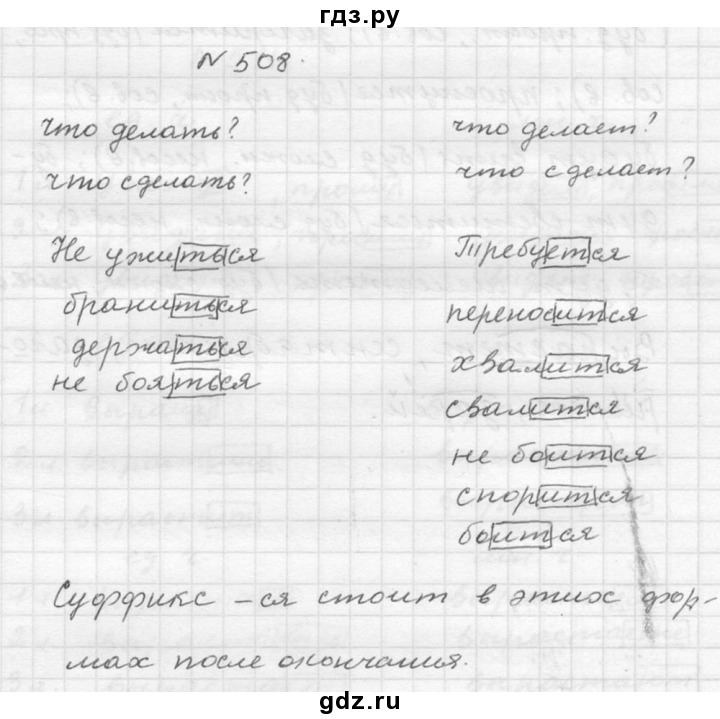 гдз.ру
№ 508.
что делать? что делает?
что сделать? что сделает?
Не ужиться Требуется
браниться переносится
держаться хвалится
не бояться свалится
не боится
спорится
боится
Суффикс -ся стоит в этих фор-
мах после окончания.
gdz.ru